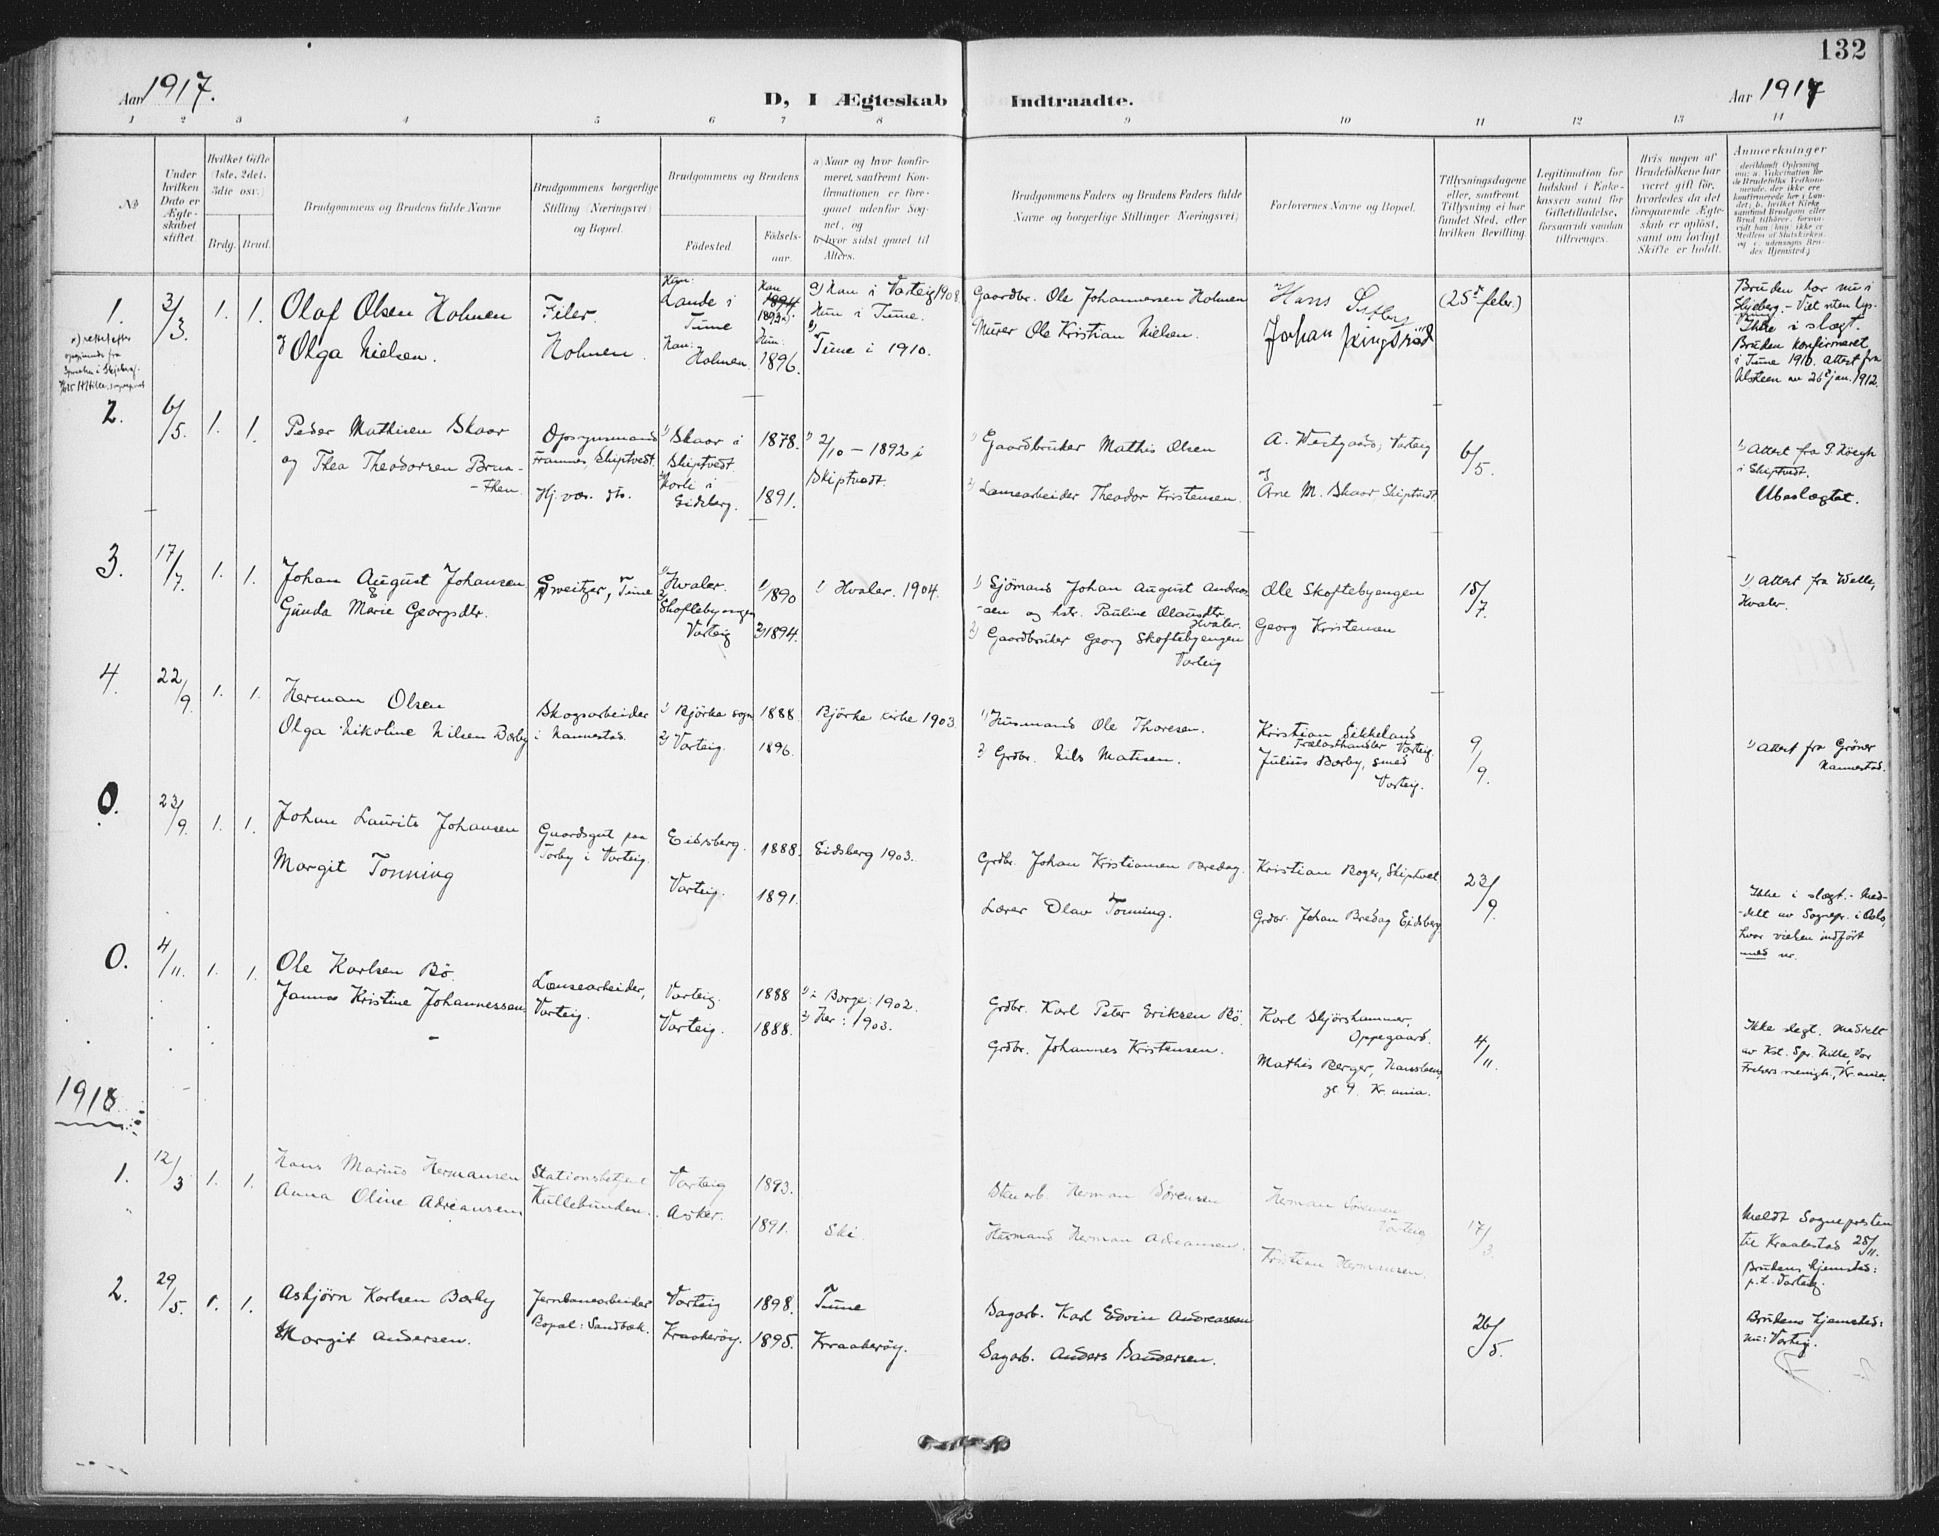 132
Aar 1917.
D, I Ægteskab Indtraadte.
Aar 1917
1 2 3 4 5 6 7 8 9 10 11 12 13 14
No
Under hvilken Dato er Ægteskabet stiftet.
Hvilket Gifte (1ste, 2det, 3dte osv.)
Brdg. Brud.
Brudgommens og Brudens fulde Navne
Brudgommens borgerlige Stilling (Næringsvei) og Bopæl.
Brudgommens og Brudens
Fødested
Fødsels-aar.
a) Naar og hvor konfirmeret, saafremt Konfirmationen er foregaaet udenfor Sognet, og
b) hvor sidst gaaet til Alters.
Brudgommens Faders og Brudens Faders fulde Navne og borgerlige Stillinger (Næringsvei)
Forlovernes Navne og Bopæl.
Tillysningsdagene eller, saafremt Tillysning ei har fundet Sted, efter hvilken Bevilling.
Legitimation for Indskud i Enkekassen samt for Giftetilladelse, forsaavidt saadan tiltrænges.
Hvis nogen af Brudefolkene har været gift før, hvorledes da det foregaaende Ægteskab er opløst, samt om lovligt Skifte er holdt.
Anmærkninger
1. 3/3 1. 1.
Olaf Olsen Holmen
og Olga Nielsen.
Filer. Holmen.
Hun: Lande i Tune
Han: Holmen.
Han 1894 1892 a)
Hun: 1896.
a) Han i Varteig 1908.
Hun i Tune.
b) Tune i 1910.
Gaardbr. Ole Johannersen Holmen
Murer Ole Kristian Nielsen.
Hans
Johan
(25d febr.)
Bruden bor nu i Skjeberg. – Viet uten lysning
Ikke i slægt.
Bruden konfirmeret i Tune 1910. Attest fra Alsteen av 26d jan. 1912.
2. 6/5. 1. 1.
Peder Mathisen Skaar
og Thea Theodorsen Braathen.
Opsynsmand
Framnes Skiptvedt.
Hj. vær. do.
1) Skaar i Skiptvedt.
2) i Eidsberg.
1878.
1891.
1) 2/10 – 1892 i Skiptvedt.
1) Gaardbruker Mathis Olsen
2) Lænsearbeider Theodor Kristensen.
A. Westgaard, Varteig
og Arne M. Skaar Skiptvedt
6/5.
1) Attest fra P. Høegh i Skiptvedt.
Ubeslægtet.
3. 17/7. 1. 1.
Johan August Johansen
& Gunda Marie Georgsdtr.
Sveitzer, Tune
1) Hvaler.
2) Skoftebyengen Varteig
1) 1890
2) 1894.
1) Hvaler. 1904.
1) Sjömand Johan August Andreassen og hstr. Pauline Olausdtr. Hvaler.
2) Gaardbruker Georg Skoftebyengen Varteig
Ole Skoftebyengen
Georg Kristensen
15/7.
1) Attest fra Welle, Hvaler.
4. 22/9. 1. 1.
Herman Olsen
Olga Nikoline Nilsen Bærby
Skogsarbeider i Nannestad.
1) Bjørke sogn
2) Varteig.
1888.
1896.
Bjørke kirke 1903
1) Husmand Ole Thoresen.
2) Grdbr. Nils Matisen.
Kristian Sikkeland
Trælasthandler Varteig
Julius Bærby, smed Varteig.
9/9.
1) Attest fra Gröner Nannestad.
0. 23/9. 1. 1.
Johan Laurits Johansen
Margit Tonning
Gaardsgut paa Torby i Varteig.
Eidsberg.
Varteig.
1888.
1891.
Eidsberg 1903.
Grdbr. Johan Kristiansen Bredag.
Lærer Olav Tonning.
Kristian Boger, Skiptvet
Grdbr. Johan Bredag Eidsberg
23/9.
Ikke i slægt. – Meddelt av Sognepr. i Oslo, hvor vielsen indført med nr.
0. 4/11. 1. 1.
Ole Karlsen Bö.
Janna Kristine Johannessen
Lænsearbeider, Varteig.
Varteig.
Varteig.
1888
1888.
1) i Borge: 1902.
2) Her: 1903.
Grdbr. Karl Peter Eriksen Bö.
Grdbr. Johannes Kristensen.
Karl Skjörshammer, Oppegaard.
Mathis Berger, gt. 9 Kr.ania.
4/11.
Ikke slegt. Meddelt av Kst. Spr. Mille, Vor Frelsers menigh., Kr.ania.
1918
1. 12/3 1. 1.
Hans Marius Hermansen
Anna Oline Adreansen
Stationsbetjent
Kullebunden.
Varteig
Asker.
1893.
1891.
Ski.
Herman Sörensen
Husmand Herman Adreansen.
Herman Sörensen Varteig
Kristian Hermansen.
17/3.
Meldt Sognepresten til Kraakstad 25/11.
Brudens hjemsted: p.t. Varteig.
2. 29/5. 1. 1.
Asbjørn Karlsen Bærby
Margit Andersen.
Jernbanearbeider
Bopæl: Sandbæk.
Varteig
Kraakerøy.
1898.
1895.
Tune
Kraakerøy.
Dagarb. Karl Edvin Andreassen
Dagarb. Anders Andersen.
26/5.
Brudens hjemsted: nu: Varteig.